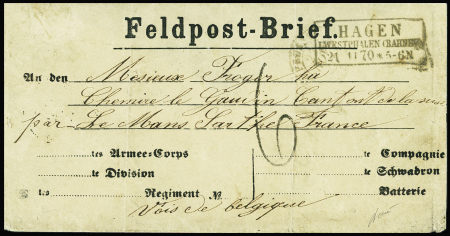 Feldpost-Brief.
HAGEN
I.WESTPHALEN (BAHNH)
21 11 70 * 5-6N
An den Mesieux Froger
Chemire le Gaudin Canton de la suse
par Le Mans Sarthe France
6
tes Armee-Corps te Compagnie
te Division te Schwadron
tes Regiment № Batterie
Vois de belgique